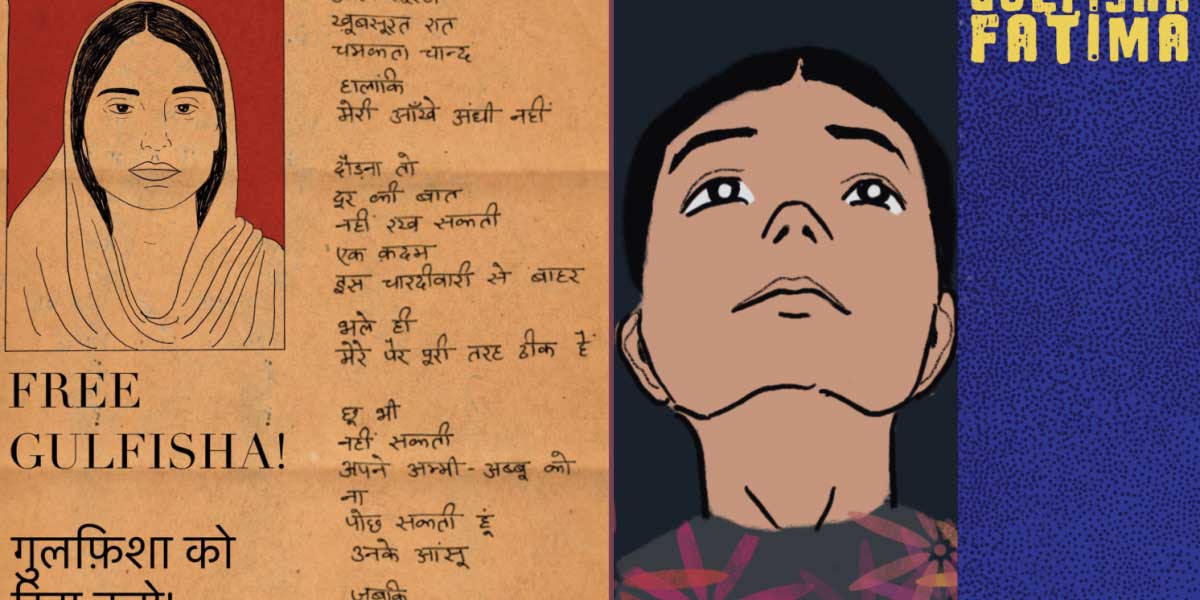 FREE
GULFISHA!
गुलफ़िशा को
रिहा करो!
खूबसूरत रात
चमकता चान्द
हालांकि
मेरी आँखे अंधी नहीं
दौड़ना तो
दूर की बात
नहीं रख सकती
एक क़दम
इस चारदीवारी से बाहर
भले ही
मेरे पैर पूरी तरह ठीक हैं
छू भी
नहीं सकती
अपने अम्मी-अब्बू को
ना
पोछ सकती हूं
उनके आंसू
जबकि
GULFISHA
FATIMA